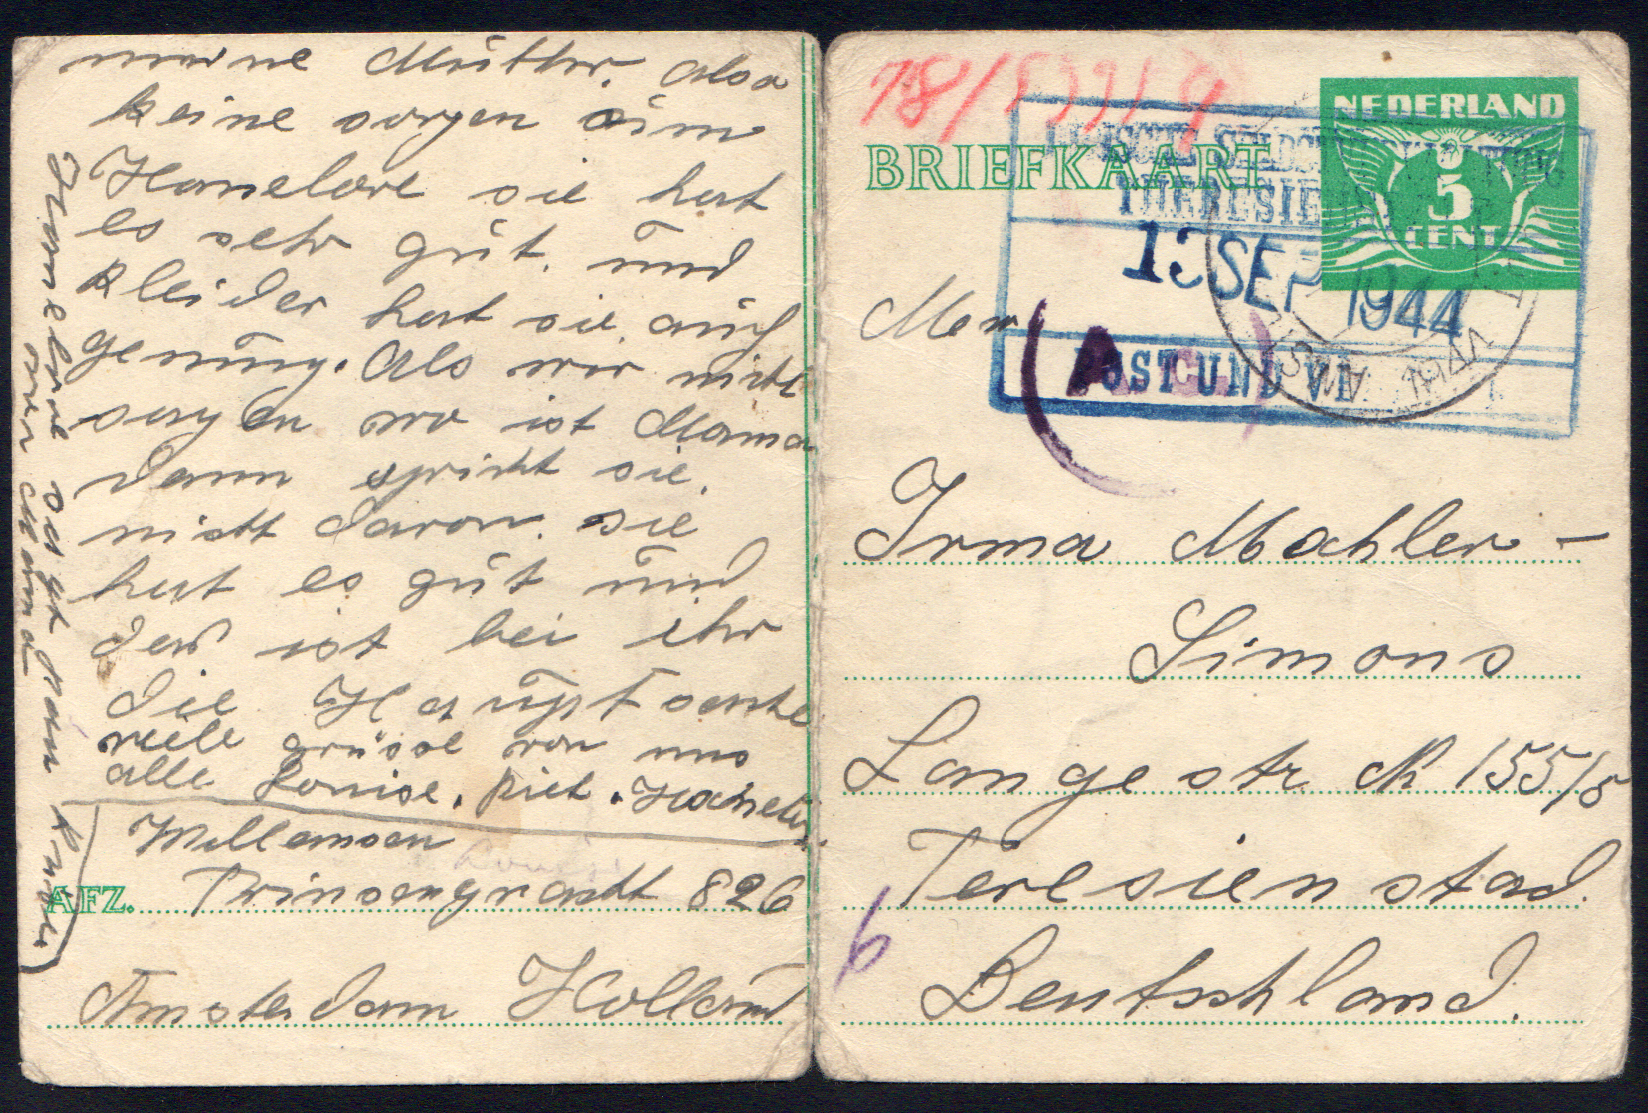 meine Mütter. Also
keine sorgen üm
Hanelore sie hat
es sehr güt. ünd
kleider hat sie aüch
genüg. Als wir nicht
sagen wo ist Mama
dann spricht sie
nicht davon. sie
hat es güt ünd
das ist bei ihr
die Haüptsache
viele grüsse von uns
alle Louise. Piet. Hanelore
Hanelore sagt
Willemsen
AFZ. Prinsengracht 826
Amsterdam Holland
78/
BRIEFKAART
NEDERLAND
5
CENT
THERESIENSTADT
13 SEP 1944
POST UND
Irma Mahler-
Simons
Langestr. N 155/5
Teresienstad.
b
Deutschland.